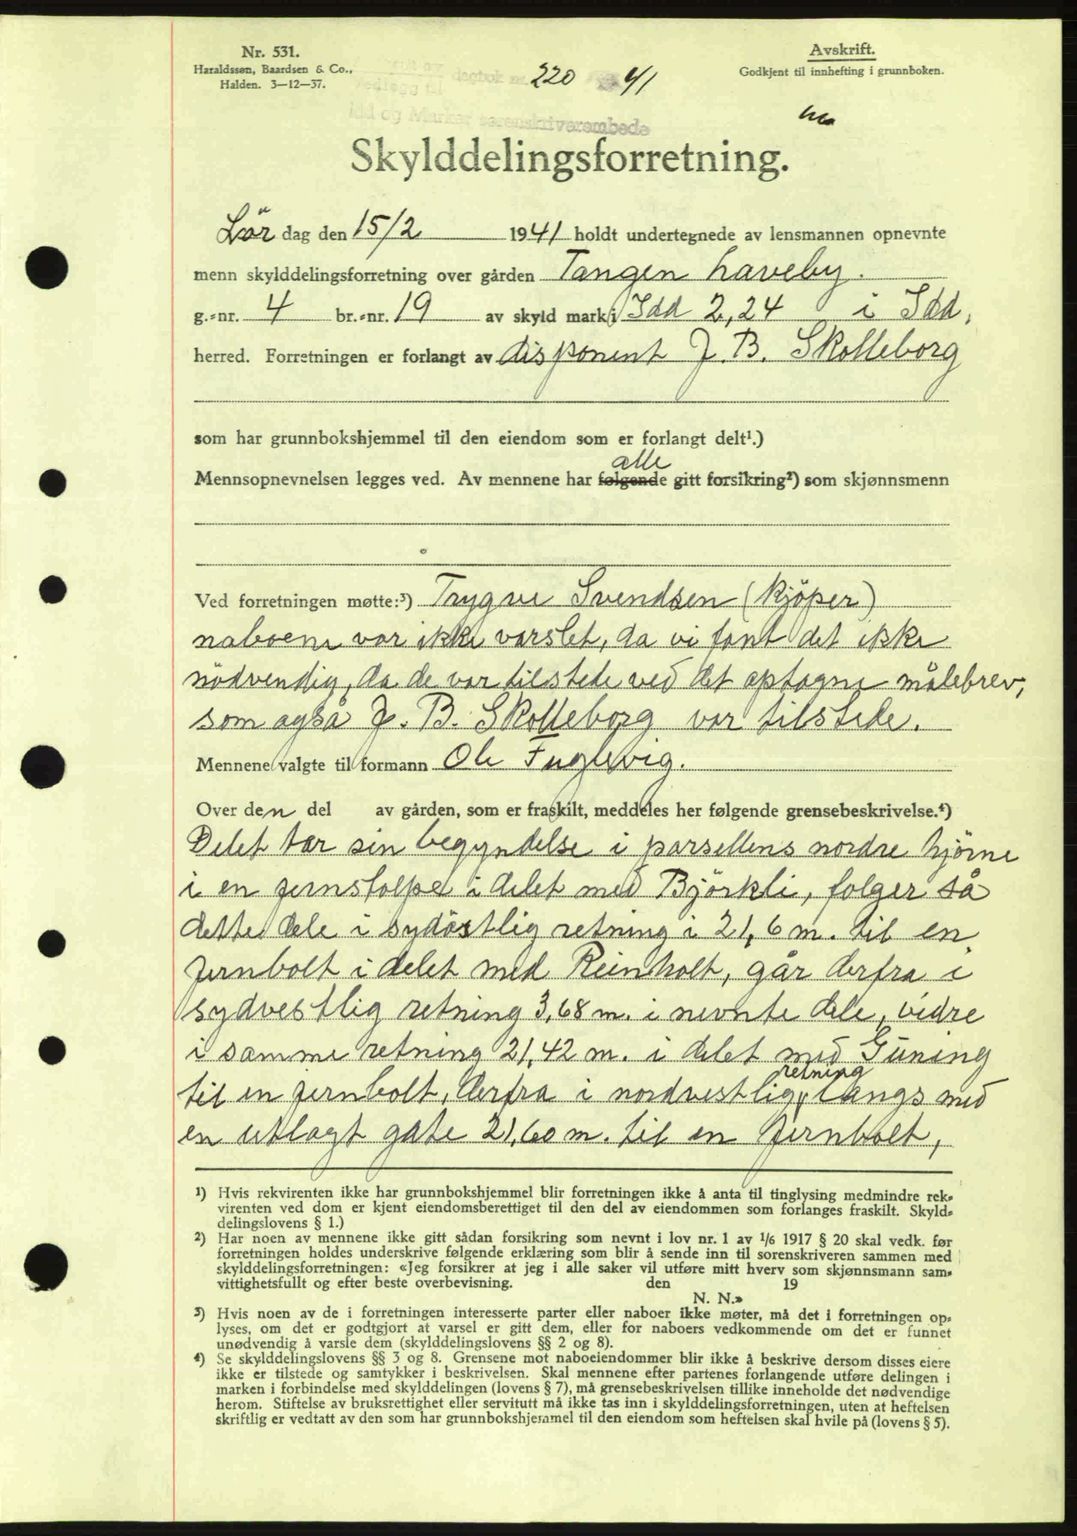 Nr. 531.
Haraldssøn, Baardsen & Co.,
Halden. 3—12—37.
Avskrift.
Godkjent til innhefting i grunnboken.
dagbok nr. 220 41
Idd og Marker sorenskriverembede
Skylddelingsforretning.
Lör dag den 15/2 1941 holdt undertegnede av lensmannen opnevnte
menn skylddelingsforretning over gården Tangen Laveby.
g.-nr. 4 br.-nr. 19 av skyld mark i Idd 2,24 i Idd,
herred. Forretningen er forlangt av disponent J. B. Skolleborg
som har grunnbokshjemmel til den eiendom som er forlangt delt¹.)
alle
Mennsopnevnelsen legges ved. Av mennene har følgende gitt forsikring²) som skjønnsmenn
Ved forretningen møtte:³) Trygve Svendsen (kjöper)
naboene var ikke varslet, da vi fant det ikke
nödvendig, da de var tilstede ved det optagne målebrev,
som også J. B. Skolleborg var tilstede.
Mennene valgte til formann Ole Fuglevig.
Over den del av gården, som er fraskilt, meddeles her følgende grensebeskrivelse.⁴)
Delet tar sin begyndelse i parsellens nordre hjörne
i en jernstolpe i delet med Björkli, følger så
dette dele i sydöstlig retning i 21,6 m. til en
jernbolt i delet med Reinholt, går derfra i
sydvestlig retning 3,68 m. i nevnte dele, vidre
i samme retning 21,42 m. i delet med Guning
retning
til en jernbolt, derfra i nordvestlig, langs med
en utlagt gate 21,60 m. til en jernbolt,
¹) Hvis rekvirenten ikke har grunnbokshjemmel blir forretningen ikke å anta til tinglysing medmindre rek-
virenten ved dom er kjent eiendomsberettiget til den del av eiendommen som forlanges fraskilt. Skyld-
delingslovens § 1.)
²) Har noen av mennene ikke gitt sådan forsikring som nevnt i lov nr. 1 av 1/6 1917 § 20 skal vedk. før
forretningen holdes underskrive følgende erklæring som blir å sende inn til sorenskriveren sammen med
skylddelingsforretningen: «Jeg forsikrer at jeg i alle saker vil utføre mitt hverv som skjønnsmann sam-
vittighetsfullt og efter beste overbevisning. den 19
N. N.»
³) Hvis noen av de i forretningen interesserte parter eller naboer ikke møter, må det i forretningen op-
lyses, om det er godtgjort at varsel er gitt dem, eller for naboers vedkommende om det er funnet
unødvendig å varsle dem (skylddelingslovens §§ 2 og 8).
⁴) Se skylddelingslovens §§ 3 og 8. Grensene mot naboeiendommer blir ikke å beskrive dersom disses eiere
ikke er tilstede og samtykker i beskrivelsen. Skal mennene efter partenes forlangende utføre delingen i
marken i forbindelse med skylddelingen (lovens § 7), må grensebeskrivelsen tillike inneholde det nødvendige
herom. Stiftelse av bruksrettighet eller servitutt må ikke tas inn i skylddelingsforretningen, uten at heftelsen
skriftlig er vedtatt av den som har grunnbokshjemmel til den eiendom som heftelsen skal hvile på (lovens § 5).